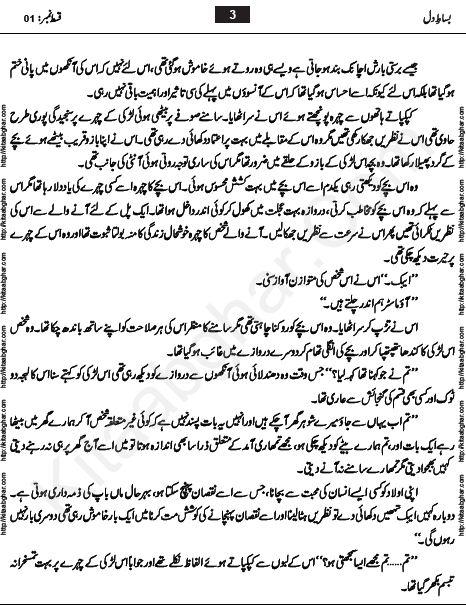 بساطِ دل 3 قسط نمبر: 01
جیسے برستی بارش اچانک بند ہو جاتی ہے ویسے ہی وہ روتے ہوئے خاموش ہو گئی تھی، اس لئے نہیں کہ اس کی آنکھوں میں پانی ختم
ہو گیا تھا بلکہ اس لئے کیونکہ اسے احساس ہو گیا تھا کہ اس کے آنسوؤں میں پہلے کی سی تاثیر اور اہمیت باقی نہیں رہی۔
کپکپاتے ہاتھوں سے چہرہ پونچھتے ہوئے اس نے سر اٹھایا۔ سامنے صوفے پر بیٹھی ہوئی لڑکی کے چہرے پر سنجیدگی پوری طرح
حاوی تھی اس نے نظریں جھکا رکھی تھیں مگر وہ اس کے مقابلے میں بہت پر اعتماد دکھائی دے رہی تھی۔ اس نے اپنا بازو قریب بیٹھے ہوئے بچے
کے گرد پھیلا رکھا تھا۔ وہ بچہ اس لڑکی کے بازو کے حلقے میں بہت مختصر ضرور تھا مگر اس کی ساری توجہ روتی ہوئی آنٹی کی جانب تھی۔
وہ اس بچے کو دیکھتی رہی یکدم اسے اس بچے میں بہت کشش محسوس ہوئی۔ اس بچے کا چہرہ اسے کسی چہرے کی یاد دلا رہا تھا مگر اس
سے پہلے کہ وہ اس بچے کو مخاطب کرتی، دروازہ بہت عجلت میں کھول کر کوئی اندر داخل ہوا تھا۔ ایک پل کے لئے آنے والے سے اس کی
نظریں ٹکرائی تھیں پھر اس نے سرعت سے نظریں جھکا لیں۔ آنے والے شخص کا چہرہ خوشحال زندگی کا منہ بولتا ثبوت تھا اور وہ اس کے چہرے
پر حیرت دیکھ چکی تھی۔
’’ایبک۔‘‘ اس نے اس شخص کی متوازن آواز سنی۔
’’آؤ ماسٹر ہم اندر چلتے ہیں۔‘‘
اس نے تڑپ کر سر اٹھایا۔ وہ اس بچے کو روکنا چاہتی تھی مگر سامنے کا منظر اس کی ہر صلاحیت کو اپنے ساتھ باندھ چکا تھا۔ وہ شخص
اس لڑکی کا کندھا تھپتھپا کر اور بچے کی انگلی تھام کر دوسرے دروازے میں غائب ہو گیا تھا۔
’’تم نے جو کہنا تھا کہہ لیا؟‘‘ جس وقت وہ دھندلائی ہوئی آنکھوں سے دروازے کو دیکھ رہی تھی اس لڑکی کو کہتے سنا اس کا لہجہ دو
ٹوک اور کسی بھی قسم کی گنجائش سے عاری تھا۔
’’تم اب یہاں سے جاؤ میرے شوہر گھر آ چکے ہیں اور انہیں یہ بات پسند نہیں ہے کہ کوئی غیر متعلقہ شخص آ کر ہمارے گھر میں بیٹھا
رہے ایک بات اور، تم ہمارے بیٹے کو دیکھ چکی ہو، مجھے تمہاری آمد کے متعلق ذرا سا بھی اندازہ ہوتا تو میں اسے آج گھر پر ہی نہ رہنے دیتی
کہیں بھجوا دیتی مگر تمہارے سامنے نہ آنے دیتی۔
اپنی اولاد کو کسی ایسے انسان کی محبت سے بچانا، جس سے اسے نقصان پہنچ سکتا ہو، بہرحال ماں باپ کی ذمہ داری ہوتی ہے۔
دوبارہ کہیں ایبک تمہیں دکھائی دے تو نظریں ہٹا لینا اور اسے نقصان پہنچانے کی کوشش مت کرنا میں ایک بار خاموش رہی تھی دوسری بار نہیں
رہوں گی۔‘‘
’’تم...... تم مجھے ایسا سمجھتی ہو؟‘‘ اس کے لبوں سے کپکپاتے ہوئے الفاظ نکلے تھے اور جواباً اس لڑکی کے چہرے پر بہت تمسخرانہ
تبسم بکھر گیا تھا۔
http://kitaabghar.com